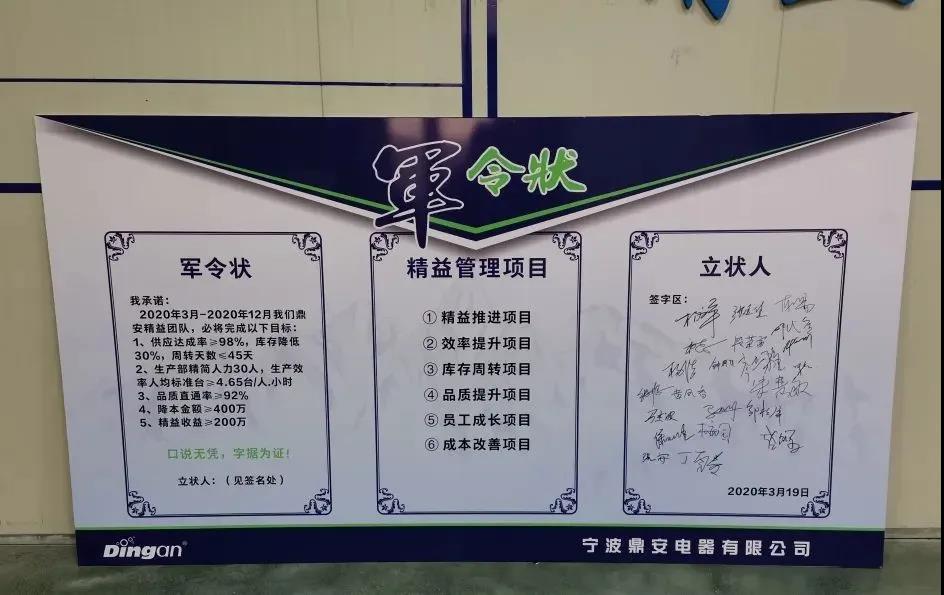 軍令狀
军令状
我承诺：
2020年3月-2020年12月我们鼎
安精益团队，必将完成以下目标：
1、供应达成率≥98%，库存降低
30%，周转天数≤45天
2、生产部精简人力30人，生产效
率人均标准台≥4.65台/人.小时
3、品质直通率≥92%
4、降本金额≥400万
5、精益收益≥200万
口说无凭，字据为证！
立状人：（见签名处）
精益管理项目
① 精益推进项目
② 效率提升项目
③ 库存周转项目
④ 品质提升项目
⑤ 员工成长项目
⑥ 成本改善项目
立状人
签字区：
2020年3月19日
Dingan®
宁波鼎安电器有限公司